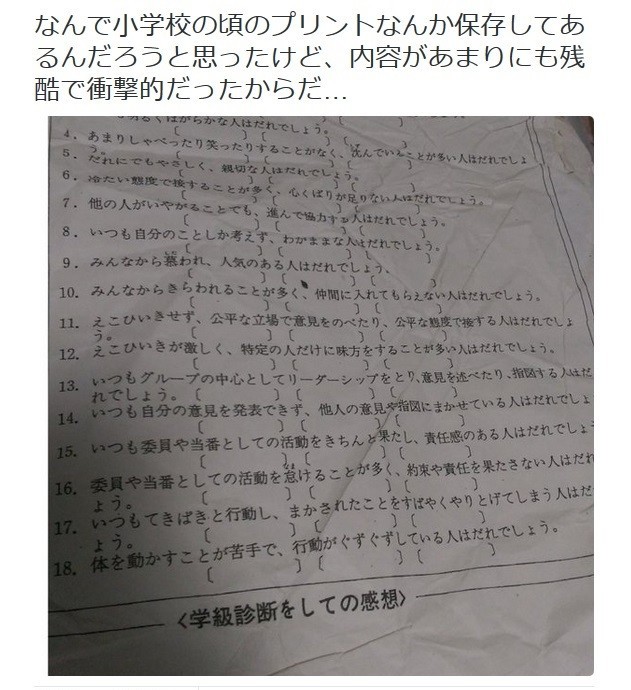 なんで小学校の頃のプリントなんか保存してあ
るんだろうと思ったけど、内容があまりにも残
酷で衝撃的だったからだ…
らかな人はだれでしょう。
〔 〕〔 〕
4. あまりしゃべったり笑ったりすることがなく、沈んでいることが多い人はだれでしょ
う。〔 〕〔 〕
5. だれにでもやさしく、親切な人はだれでしょう。
〔 〕〔 〕
6. 冷たい態度で接することが多く、心くばりが足りない人はだれでしょう。
〔 〕〔 〕
7. 他の人がいやがることでも、進んで協力する人はだれでしょう。
〔 〕〔 〕
8. いつも自分のことしか考えず、わがままな人はだれでしょう。
〔 〕〔 〕
9. みんなから慕われ、人気のある人はだれでしょう。
〔 〕〔 〕
10. みんなからきらわれることが多く、仲間に入れてもらえない人はだれでしょう。
〔 〕〔 〕
11. えこひいきせず、公平な立場で意見をのべたり、公平な態度で接する人はだれでしょ
う。〔 〕〔 〕
12. えこひいきが激しく、特定の人だけに味方をすることが多い人はだれでしょう。
〔 〕〔 〕
13. いつもグループの中心としてリーダーシップをとり、意見を述べたり、指図する人はだ
れでしょう。〔 〕〔 〕
14. いつも自分の意見を発表できず、他人の意見や指図にまかせている人はだれでしょ
〔 〕〔 〕
15. いつも委員や当番としての活動をきちんと果たし、責任感のある人はだれでしょ
〔 〕〔 〕
16. 委員や当番としての活動を怠けることが多く、約束や責任を果たさない人はだれ
ょう。〔 〕〔 〕
17. いつもてきぱきと行動し、まかされたことをすばやくやりとげてしまう人はだ
ょう。〔 〕〔 〕
18. 体を動かすことが苦手で、行動がぐずぐずしている人はだれでしょう。
〔 〕〔 〕
〈学級診断をしての感想〉